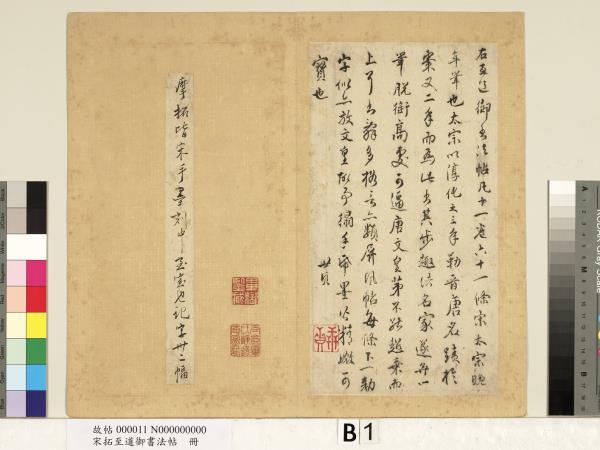 右至道御書法帖凡十一卷六十一條宋太宗晚
年筆也太宗以淳化之三年勒晉唐名蹟於
棗又二年而為此書其步趣信名家遂無一
筆脫銜高處可逼唐文皇第不能超乘而
上耳書辭多格言亦類屏風帖每條下一勅
字似亦放文皇敕字搨手紙墨精嫩可
寶也
世貞
摩拓皆宋手墨刻中至寶也記字廿二幅
故帖 000011 N000000000
宋拓至道御書法帖 冊
B 1